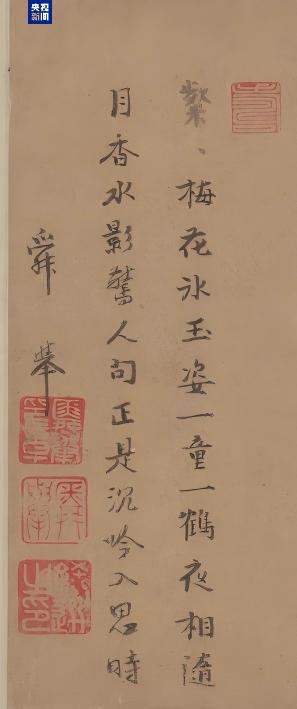 央视
新闻
粲、梅花氷玉姿一童一鶴夜相隨
月香水影驚人句正是沉吟入思時
舜舉